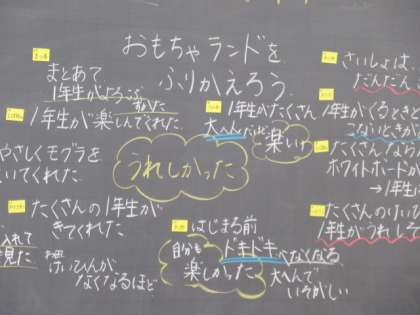 おもちゃランドを
ふりかえろう
まとあて
1年生がよろこぶ
1年生が楽しんでくれた
やさしくモグラを
いてくれた
うれしかった
たくさんの1年生が
きてくれた
入れて
見た
けいひんが
なくなるほど
1年生がたくさん
大へん
楽しい
はじまる前
自分も
楽しかった
ドキドキ
なくなる
大へんで
いそがしい
さいしょは
だんだん
1年生がくるときと
こないときが
たくさんならん
ホワイトボードが
→1年生に
たくさんのけい
1年生がうれしそ